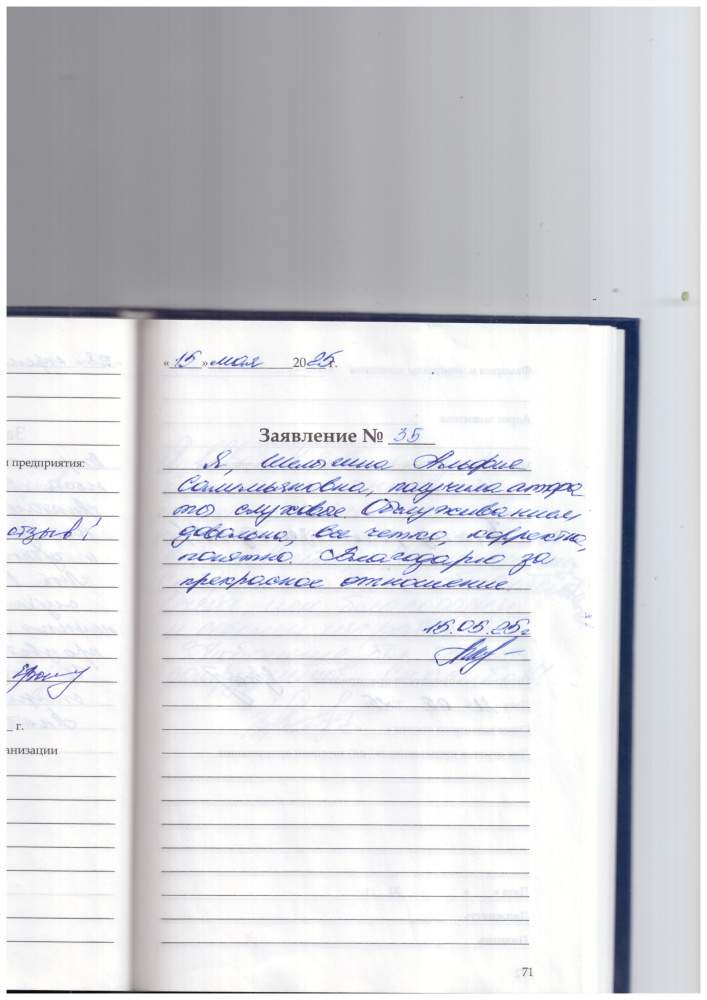 «15» мая 2025 г.
Заявление № 35
Я, Шелыгина Альфие
Салимьяновна, получила аппара
ты слуховые Обслуживанием
довольна, все четко, корректно,
понятно. Благодарю за
прекрасное отношение.
15.05.25г
71
и предприятия:
отзыв!
г.
анизации